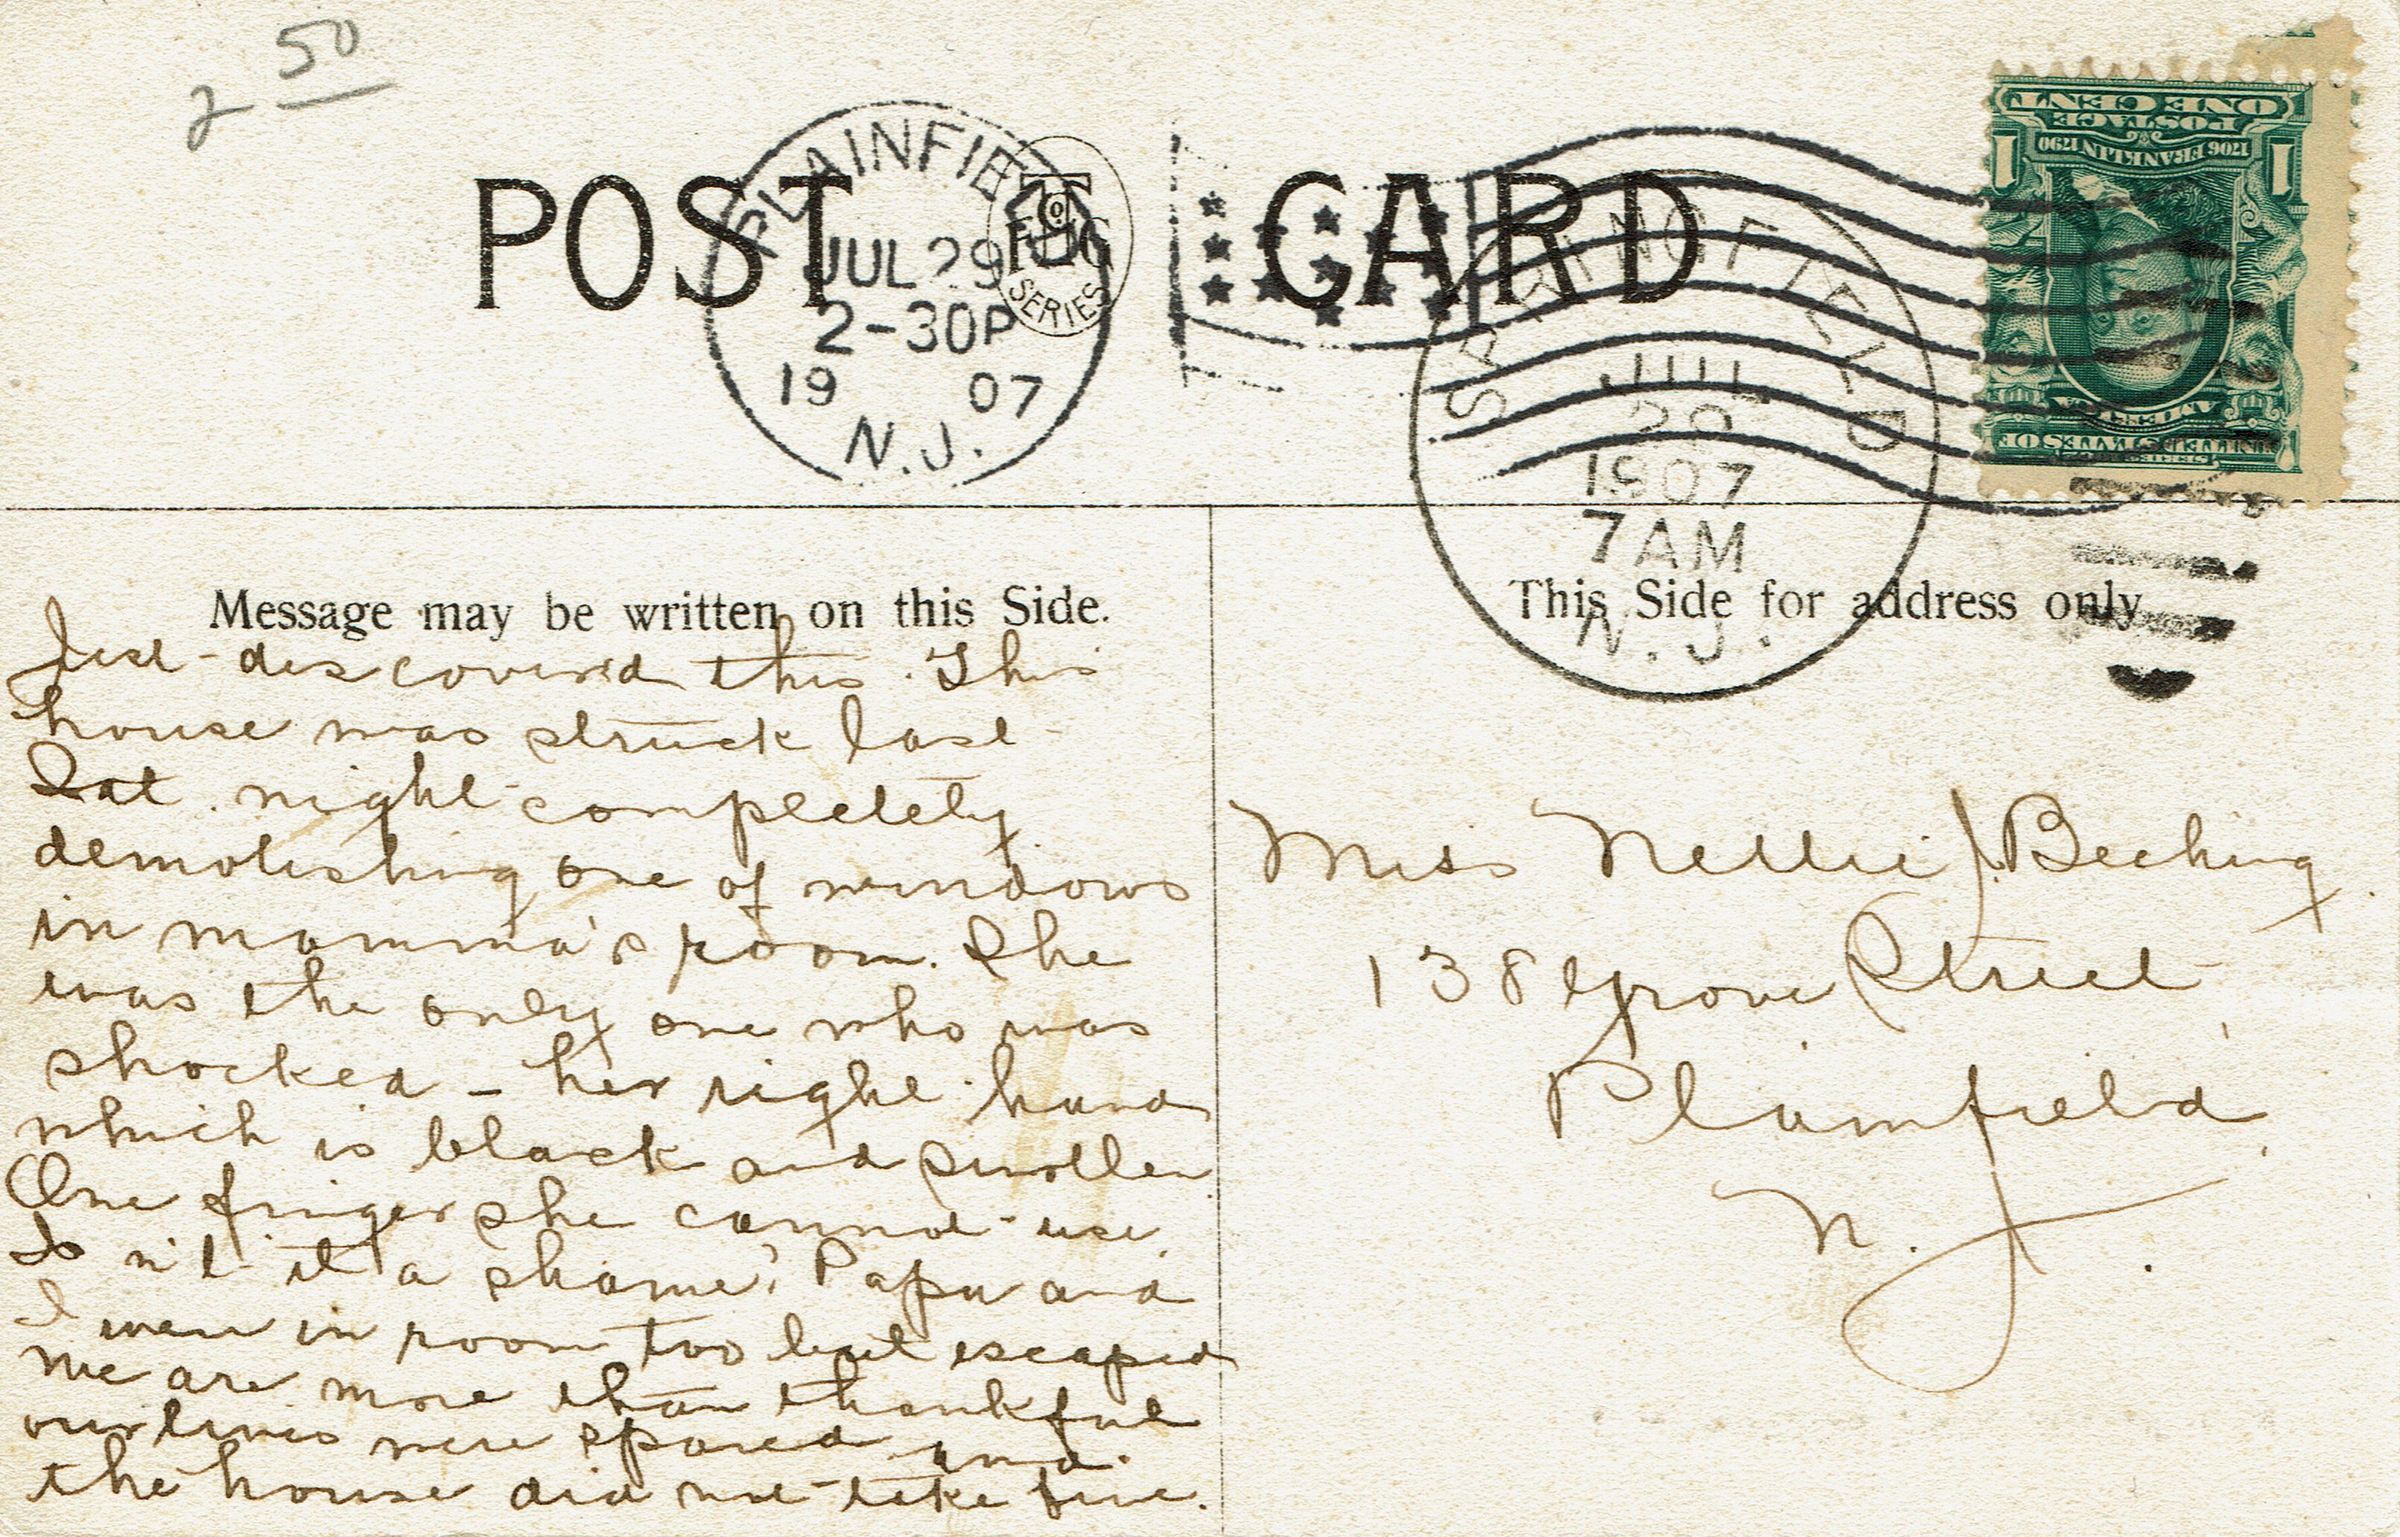 2 50
POST CARD
PLAINFIELD
JUL 29
2-30P
19 07
N.J.
Co.
SERIES
SPRINGFIELD
JUL
29
1907
7 AM
N.J.
ONE CENT
POSTAGE
1706 FRANKLIN 1790
1 1
AMERICA
UNITED STATES OF
Message may be written on this Side.
Just discovered this. This
house was struck last
Sat. night completely
demolishing one of windows
in mamma's room. She
was the only one who was
shocked - her right hand
which is black and swollen
One finger she cannot use.
Is n't it a shame? Papa and
I were in room too but escaped
We are more than thankful
our lives were spared and
the house did not take fire.
This Side for address only
Miss Nellie J. Beeking
138 Grove Street
Plainfield,
N. J.